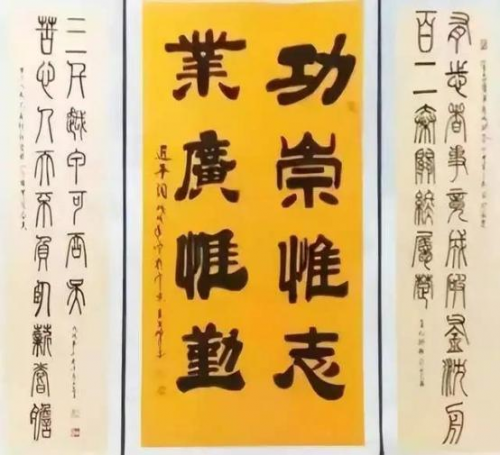 有志者事竟成破釜沉舟
百二秦關終屬楚
功崇惟志
業廣惟勤
苦心人天不負臥薪嘗膽
三千越甲可吞吳